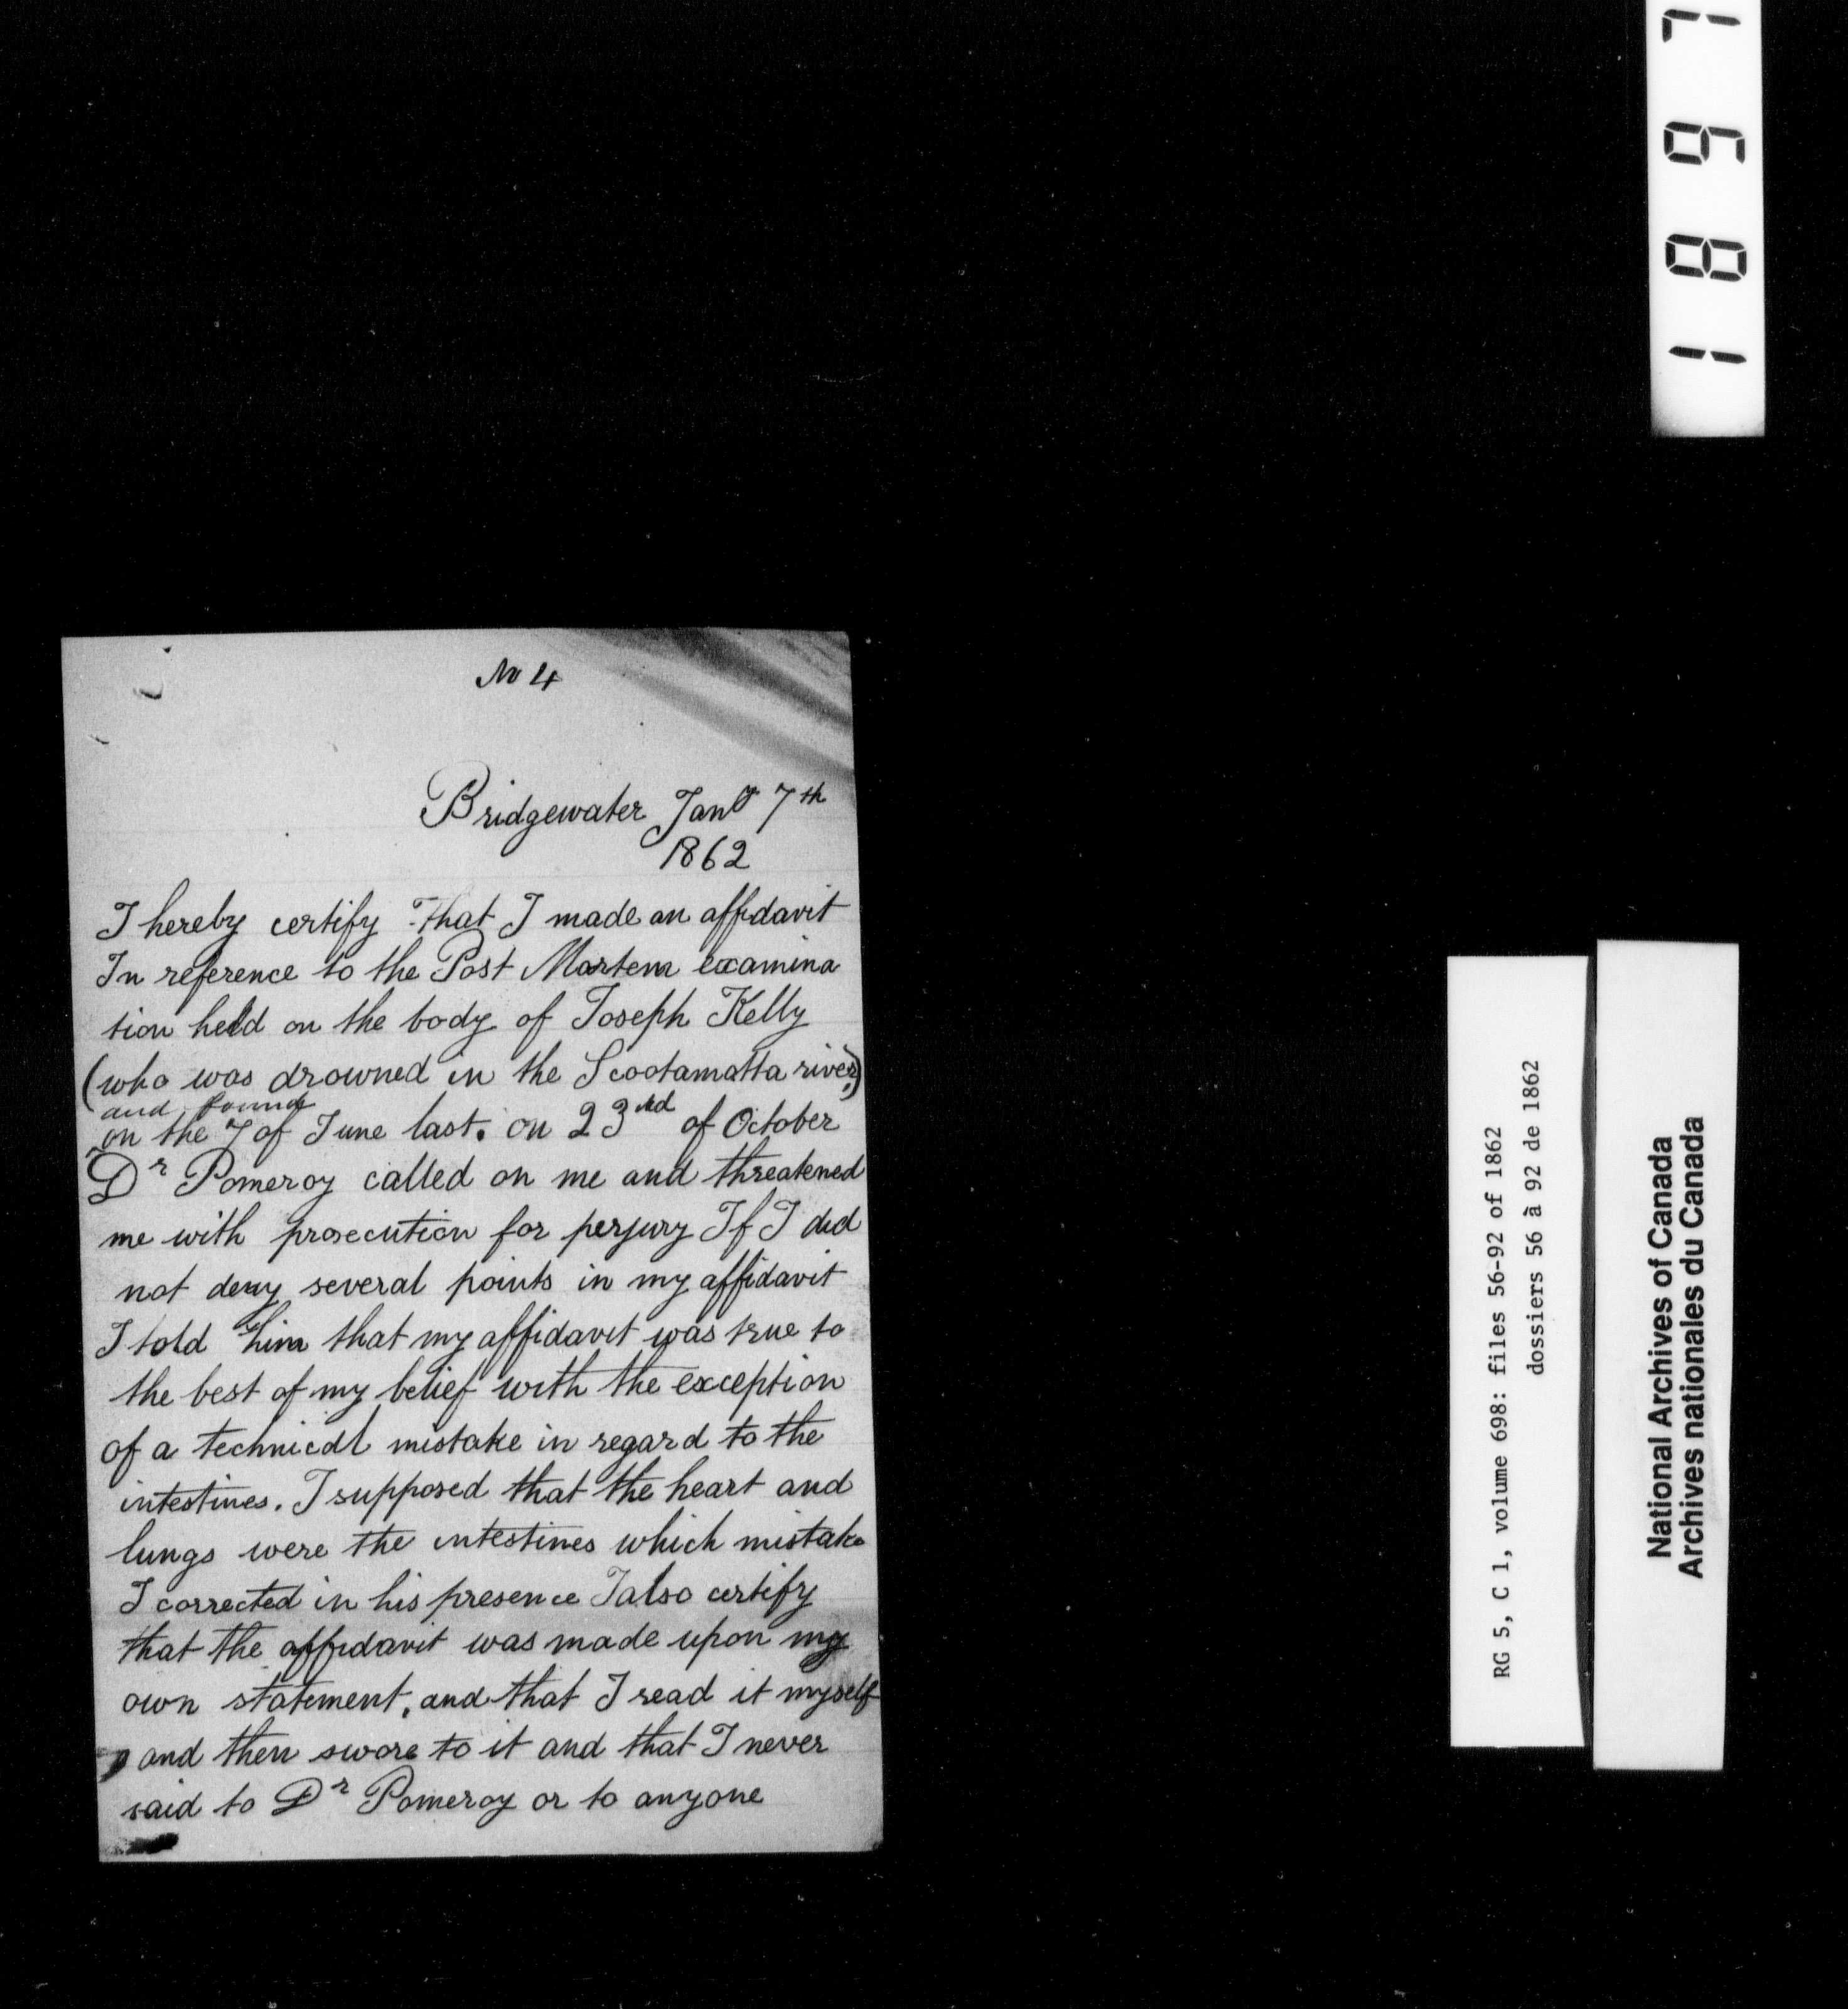 No 4
Bridgewater Jany 7th
1862
I hereby certify that I made an affidavit
In reference to the Post Mortem examina
tion held on the body of Joseph Kelly
(who was drowned in the Scootamatta river,)
and found
on the 7 of June last. on 23rd of October
Dr Pomeroy called on me and threatened
me with prosecution for perjury If I did
not deny several points in my affidavit
I told him that my affidavit was true to
the best of my belief with the exception
of a technical mistake in regard to the
intestines. I supposed that the heart and
lungs were the intestines which mistake
I corrected in his presence I also certify
that the affidavit was made upon my
own statement, and that I read it myself
and then swore to it and that I never
said to Dr Pomeroy or to anyone
RG 5, C 1, volume 698: files 56-92 of 1862
dossiers 56 à 92 de 1862
National Archives of Canada
Archives nationales du Canada